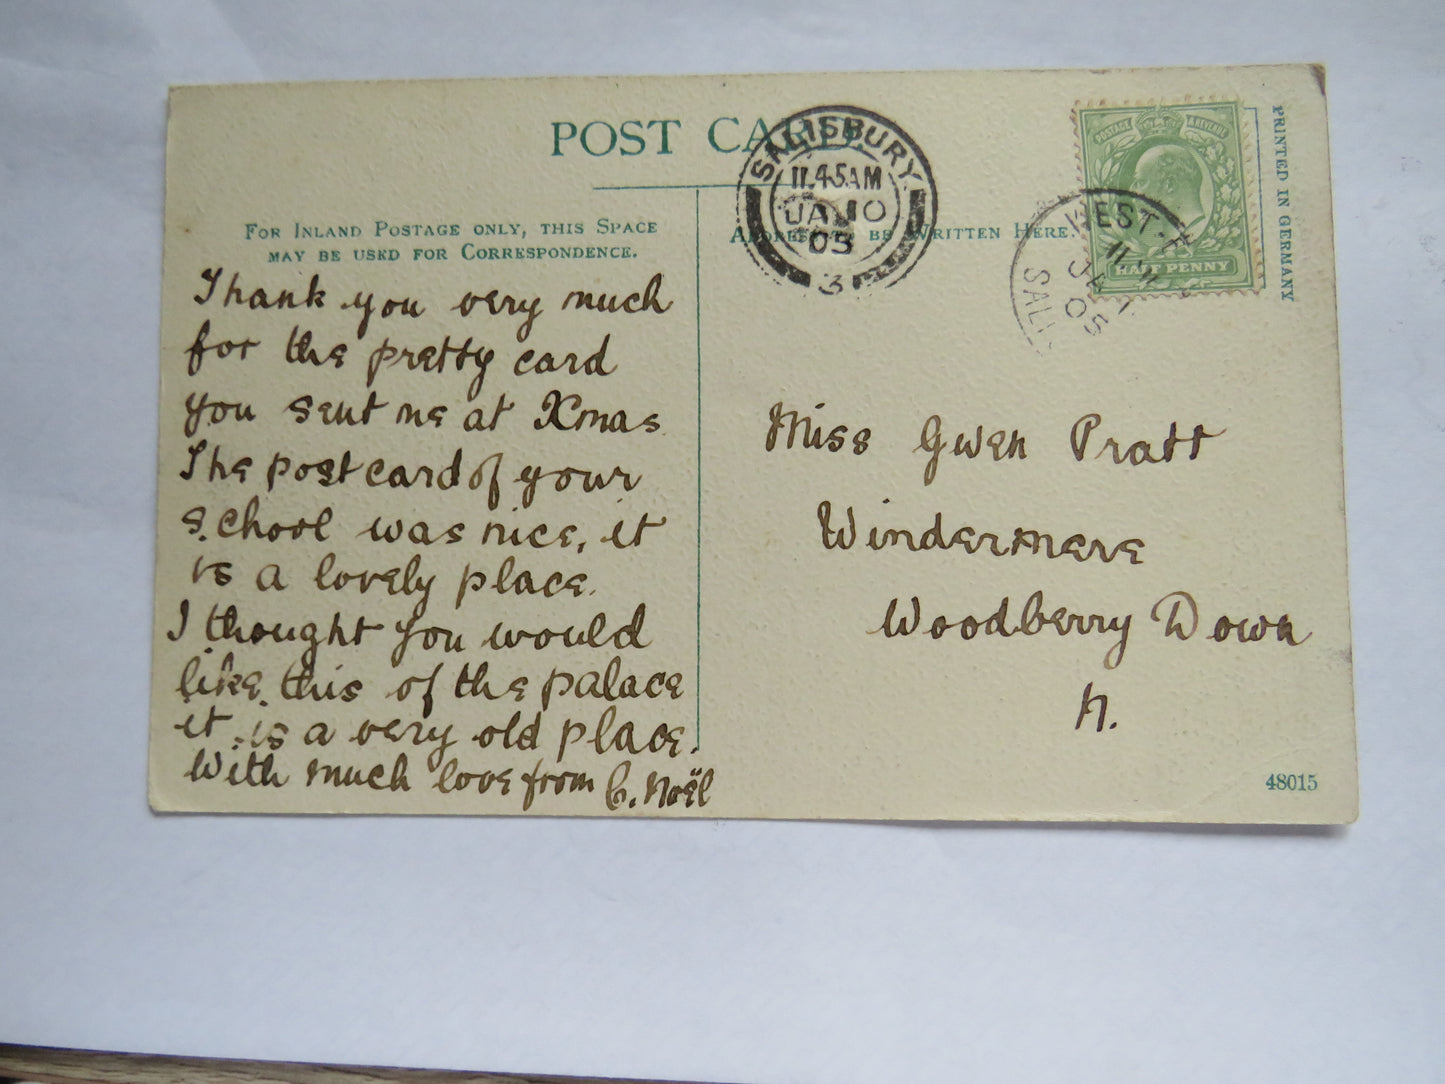 POST CARD
FOR INLAND POSTAGE ONLY, THIS SPACE
MAY BE USED FOR CORRESPONDENCE.
Thank you very much
for the pretty card
you sent me at Xmas
The postcard of your
school was nice, it
is a lovely place.
I thought you would
like this of the palace
it is a very old place.
With much love from C. Noël
SALISBURY
11.45AM
JA 10
05
3
ADDRESS TO BE WRITTEN HERE.
POSTAGE & REVENUE
HALF PENNY
WEST
JA
05
SALI
PRINTED IN GERMANY
Miss Gwen Pratt
Windermere
Woodberry Down
N.
48015